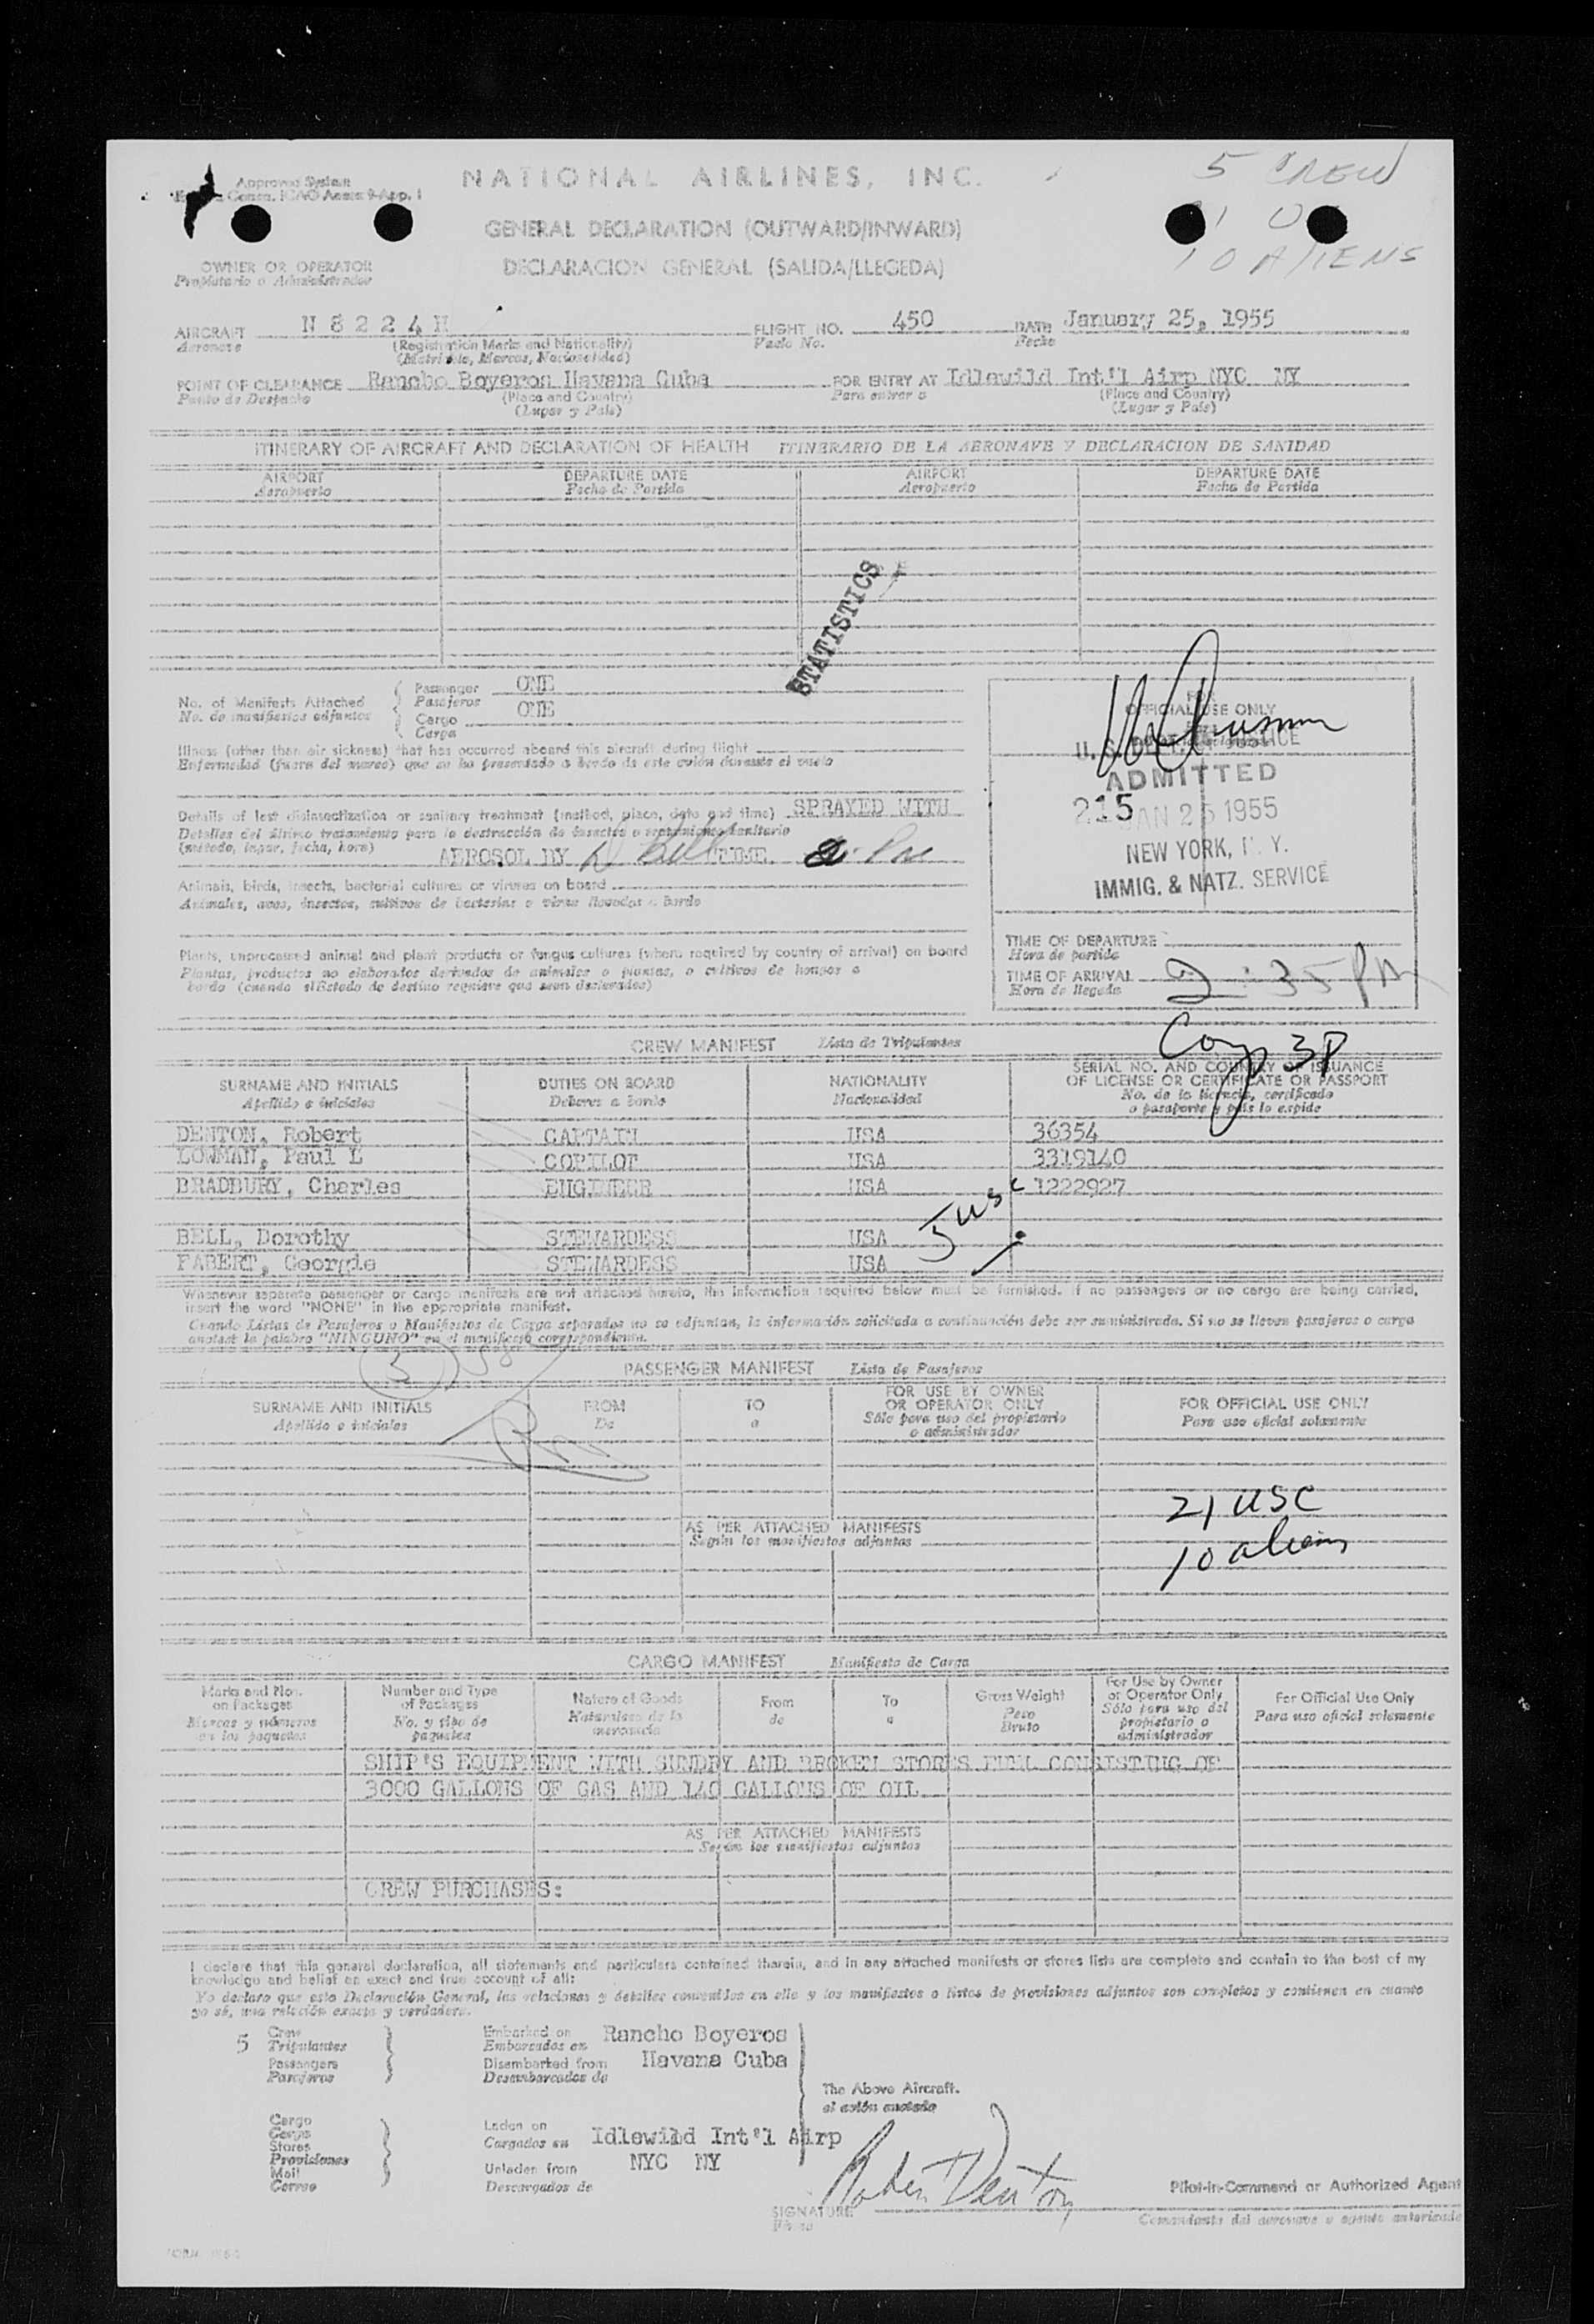 Approved System
ICAO Annex 9-App. 1
NATIONAL AIRLINES, INC.
5 CREW
10 ALIENS
GENERAL DECLARATION (OUTWARD/INWARD)
DECLARACION GENERAL (SALIDA/LLEGEDA)
OWNER OR OPERATOR
Propietario o Administrador
AIRCRAFT N 8 2 2 4 H FLIGHT NO. 450 DATE January 25, 1955
Aeronave (Registration Marks and Nationality) Vuelo No. Fecha
(Matricula, Marcas, Nacionalidad)
POINT OF CLEARANCE Rancho Boyeros Havana Cuba FOR ENTRY AT Idlewild Int'l Airp NYC NY
Punto de Despacho (Place and Country) Para entrar a (Place and Country)
(Lugar y País) (Lugar y País)
ITINERARY OF AIRCRAFT AND DECLARATION OF HEALTH ITINERARIO DE LA AERONAVE Y DECLARACION DE SANIDAD
AIRPORT DEPARTURE DATE AIRPORT DEPARTURE DATE
Aeropuerto Fecha de Partida Aeropuerto Fecha de Partida
STATISTICS
No. of Manifests Attached Passenger ONE
No. de manifiestos adjuntos Pasajeros
Cargo ONE
Carga
FOR
OFFICIAL USE ONLY
Illness (other than air sickness) that has occurred aboard this aircraft during flight
Enfermedad (fuera del mareo) que se ha presentado a bordo de este avión durante el vuelo
ADMITTED
215 JAN 25 1955
NEW YORK, N. Y.
IMMIG. & NATZ. SERVICE
Details of last disinsectization or sanitary treatment (method, place, date and time) SPRAYED WITH
Detalles del último tratamiento para la destrucción de insectos o tratamiento sanitario
(método, lugar, fecha, hora) AEROSOL BY D Bell TIME
Animals, birds, insects, bacterial cultures or viruses on board
Animales, aves, insectos, cultivos de bacterias o virus llevados a bordo
Plants, unprocessed animal and plant products or fungus cultures (where required by country of arrival) on board
Plantas, productos no elaborados derivados de animales o plantas, o cultivos de hongos a
bordo (cuando el Estado de destino requiere que sean declarados)
TIME OF DEPARTURE
Hora de partida
TIME OF ARRIVAL 2:35 PM
Hora de llegada
CREW MANIFEST Lista de Tripulantes
SURNAME AND INITIALS DUTIES ON BOARD NATIONALITY SERIAL NO. AND COUNTRY OF ISSUANCE
OF LICENSE OR CERTIFICATE OR PASSPORT
Apellido e iniciales Deberes a bordo Nacionalidad No. de la licencia, certificado
o pasaporte y país lo expide
DENTON, Robert CAPTAIN USA 36354
LOWMAN, Paul L COPILOT USA 3319140
BRADBURY, Charles ENGINEER USA 1222927
5 usc
BELL, Dorothy STEWARDESS USA
FABERT, Georgie STEWARDESS USA
Whenever separate passenger or cargo manifests are not attached hereto, the information required below must be furnished. If no passengers or no cargo are being carried,
insert the word "NONE" in the appropriate manifest.
Cuando Listas de Pasajeros o Manifiestos de Carga separados no se adjuntan, la información solicitada a continuación debe ser suministrada. Si no se llevan pasajeros o carga
anotase la palabra "NINGUNO" en el manifiesto correspondiente.
PASSENGER MANIFEST Lista de Pasajeros
SURNAME AND INITIALS FROM TO FOR USE BY OWNER
OR OPERATOR ONLY FOR OFFICIAL USE ONLY
Apellido e iniciales De a Sólo para uso del propietario
o administrador Para uso oficial solamente
21 USC
AS PER ATTACHED MANIFESTS
Según los manifiestos adjuntos
10 aliens
CARGO MANIFEST Manifiesto de Carga
Marks and Nos.
on Packages
Marcas y números
en los paquetes
Number and Type
of Packages
No. y tipo de
paquetes
Nature of Goods
Naturaleza de la
mercancía
From
de
To
a
Gross Weight
Peso
Bruto
For Use by Owner
or Operator Only
Sólo para uso del
propietario o
administrador
For Official Use Only
Para uso oficial solamente
SHIP'S EQUIPMENT WITH SUNDRY AND BROKEN STORES FUEL CONSISTING OF
3000 GALLONS OF GAS AND 140 GALLONS OF OIL
AS PER ATTACHED MANIFESTS
Según los manifiestos adjuntos
CREW PURCHASES:
I declare that this general declaration, all statements and particulars contained therein, and in any attached manifests or stores lists are complete and contain to the best of my
knowledge and belief an exact and true account of all:
Yo declaro que esta Declaración General, las relaciones y detalles contenidos en ella y los manifiestos o listas de provisiones adjuntos son completos y contienen en cuanto
yo sé, una relación exacta y verdadera.
5 Crew
Tripulantes
Passengers
Pasajeros
Embarked on Rancho Boyeros
Embarcados en
Disembarked from Havana Cuba
Desembarcados de
The Above Aircraft.
al avión anotado
Cargo
Carga
Stores
Provisiones
Mail
Correo
Laden on
Cargados en Idlewild Int'l Airp
Unladen from NYC NY
Descargados de
SIGNATURE Robert Denton
Firma
Pilot-in-Command or Authorized Agent
Comandante del aeronave o agente autorizado